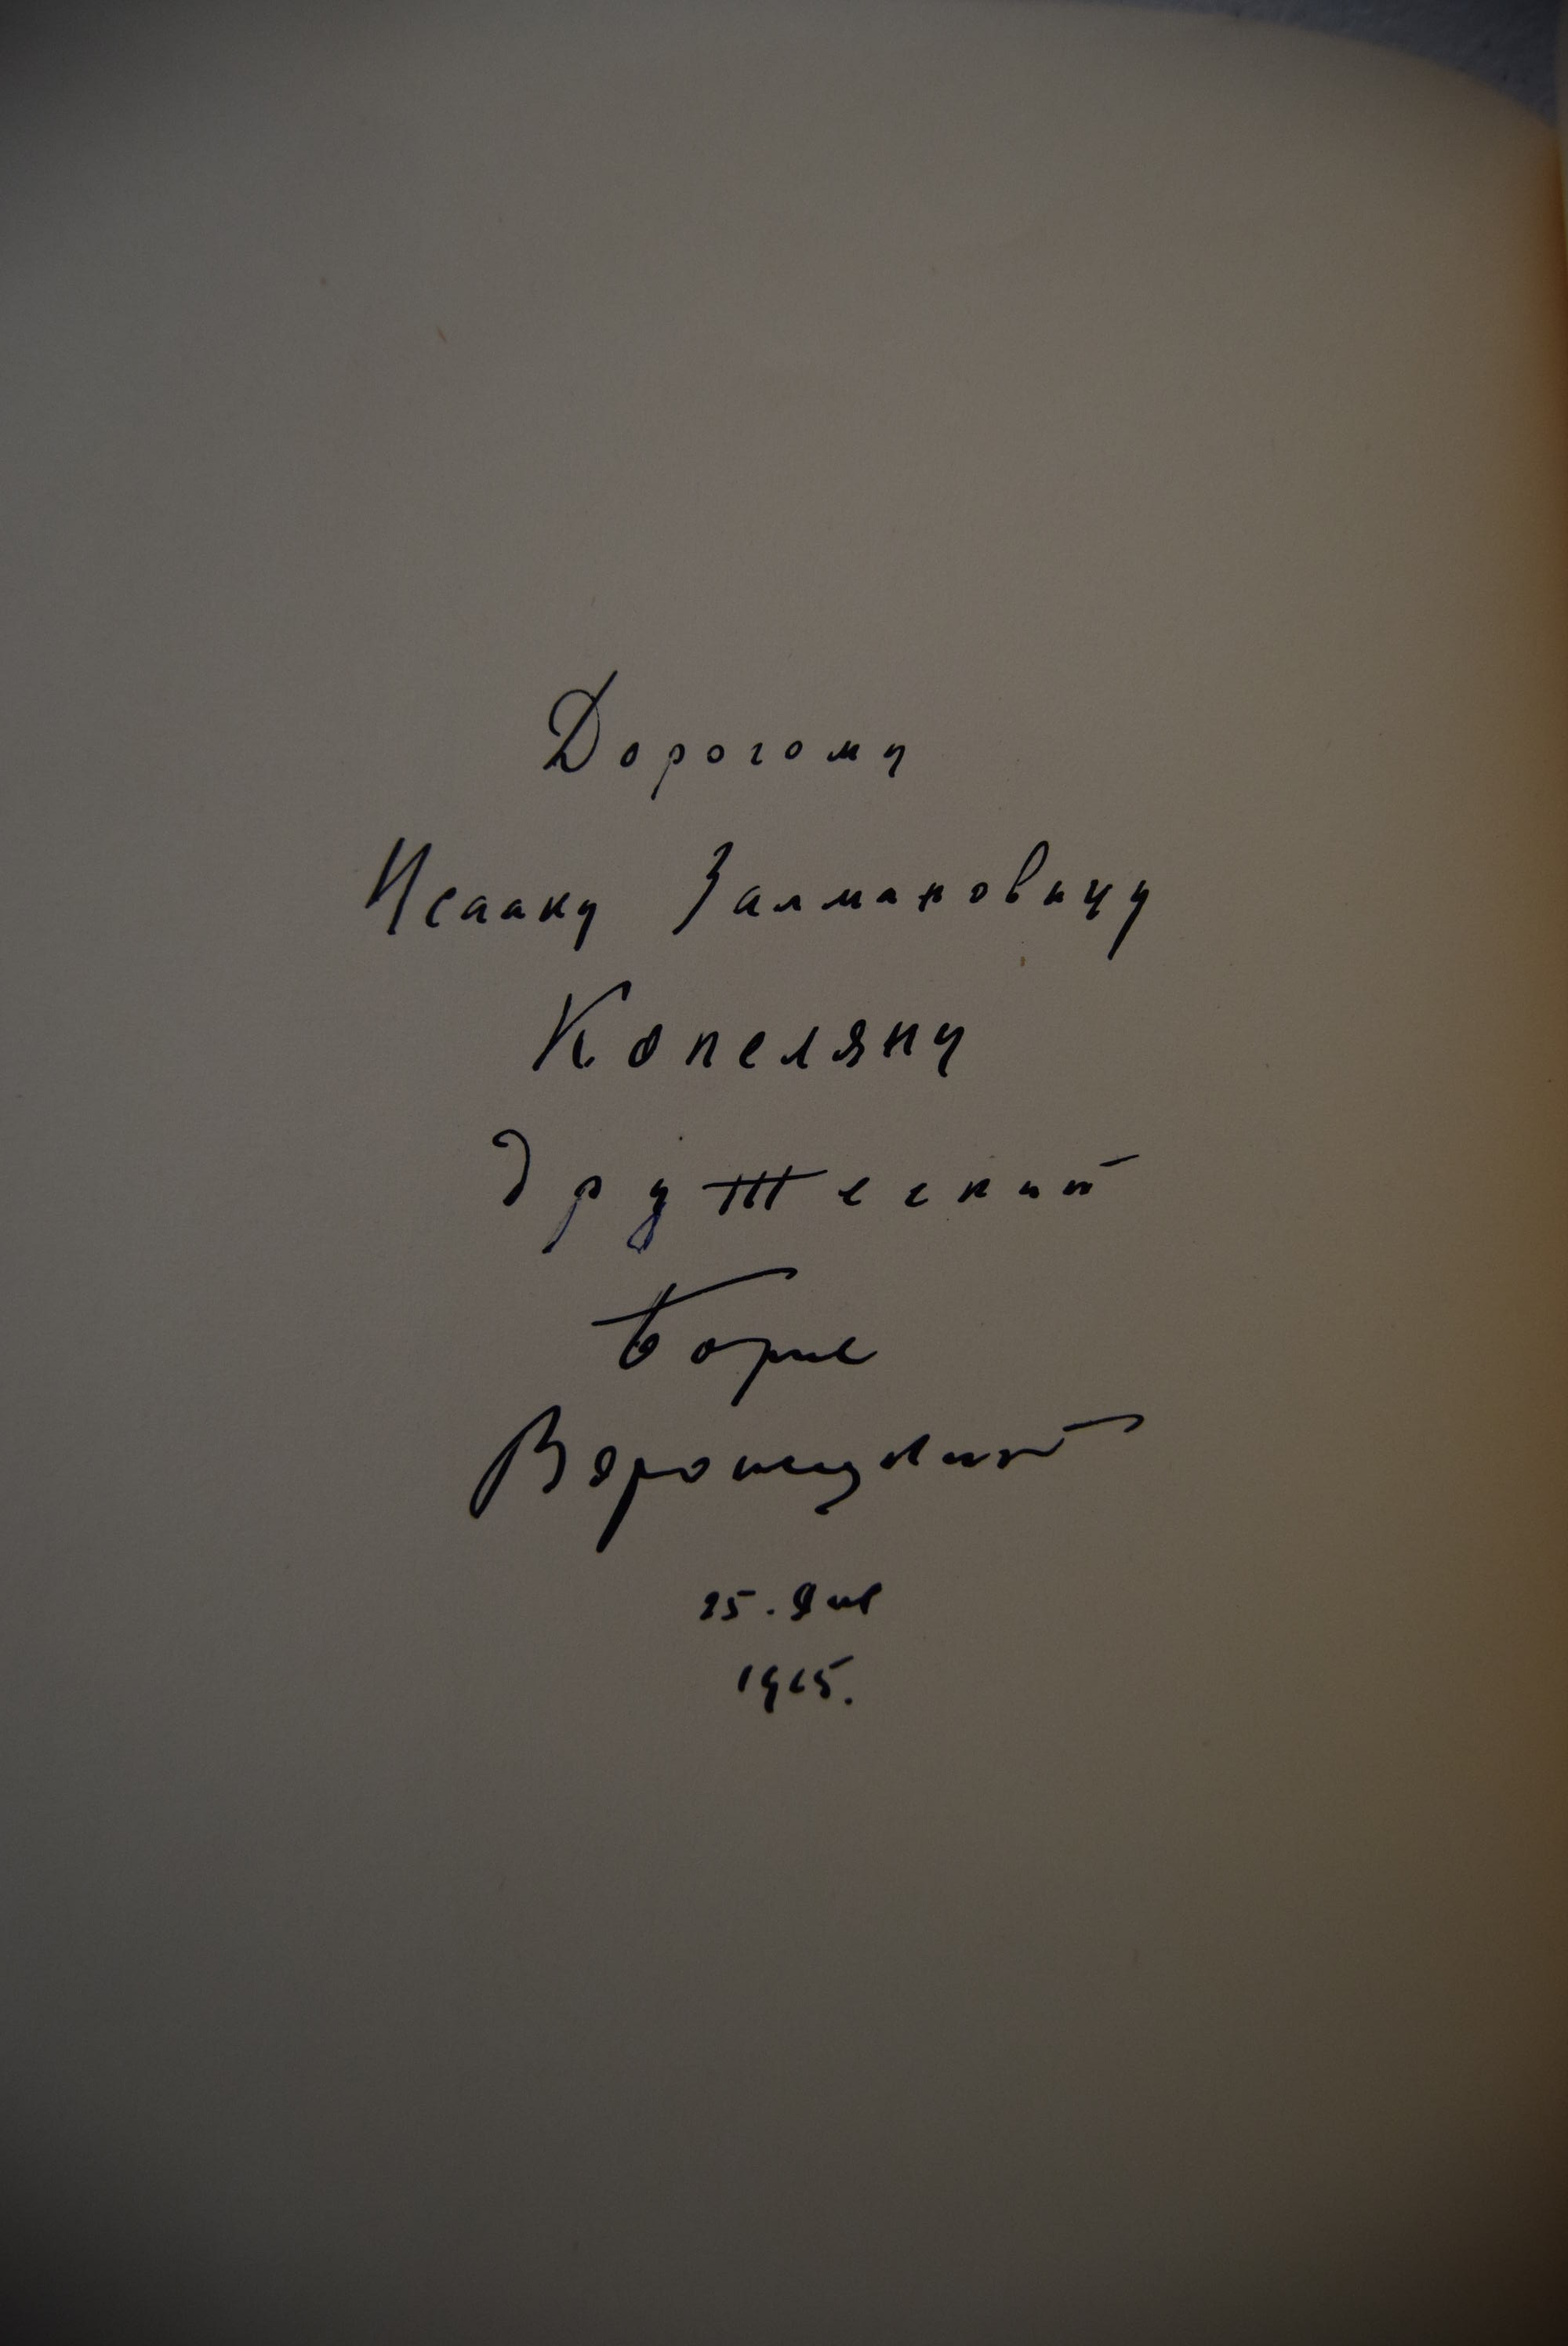 Дорогому
Исааку Залмановичу
Копеляну
дружеский
Борис
Воронецкий
25. Янв
1965.